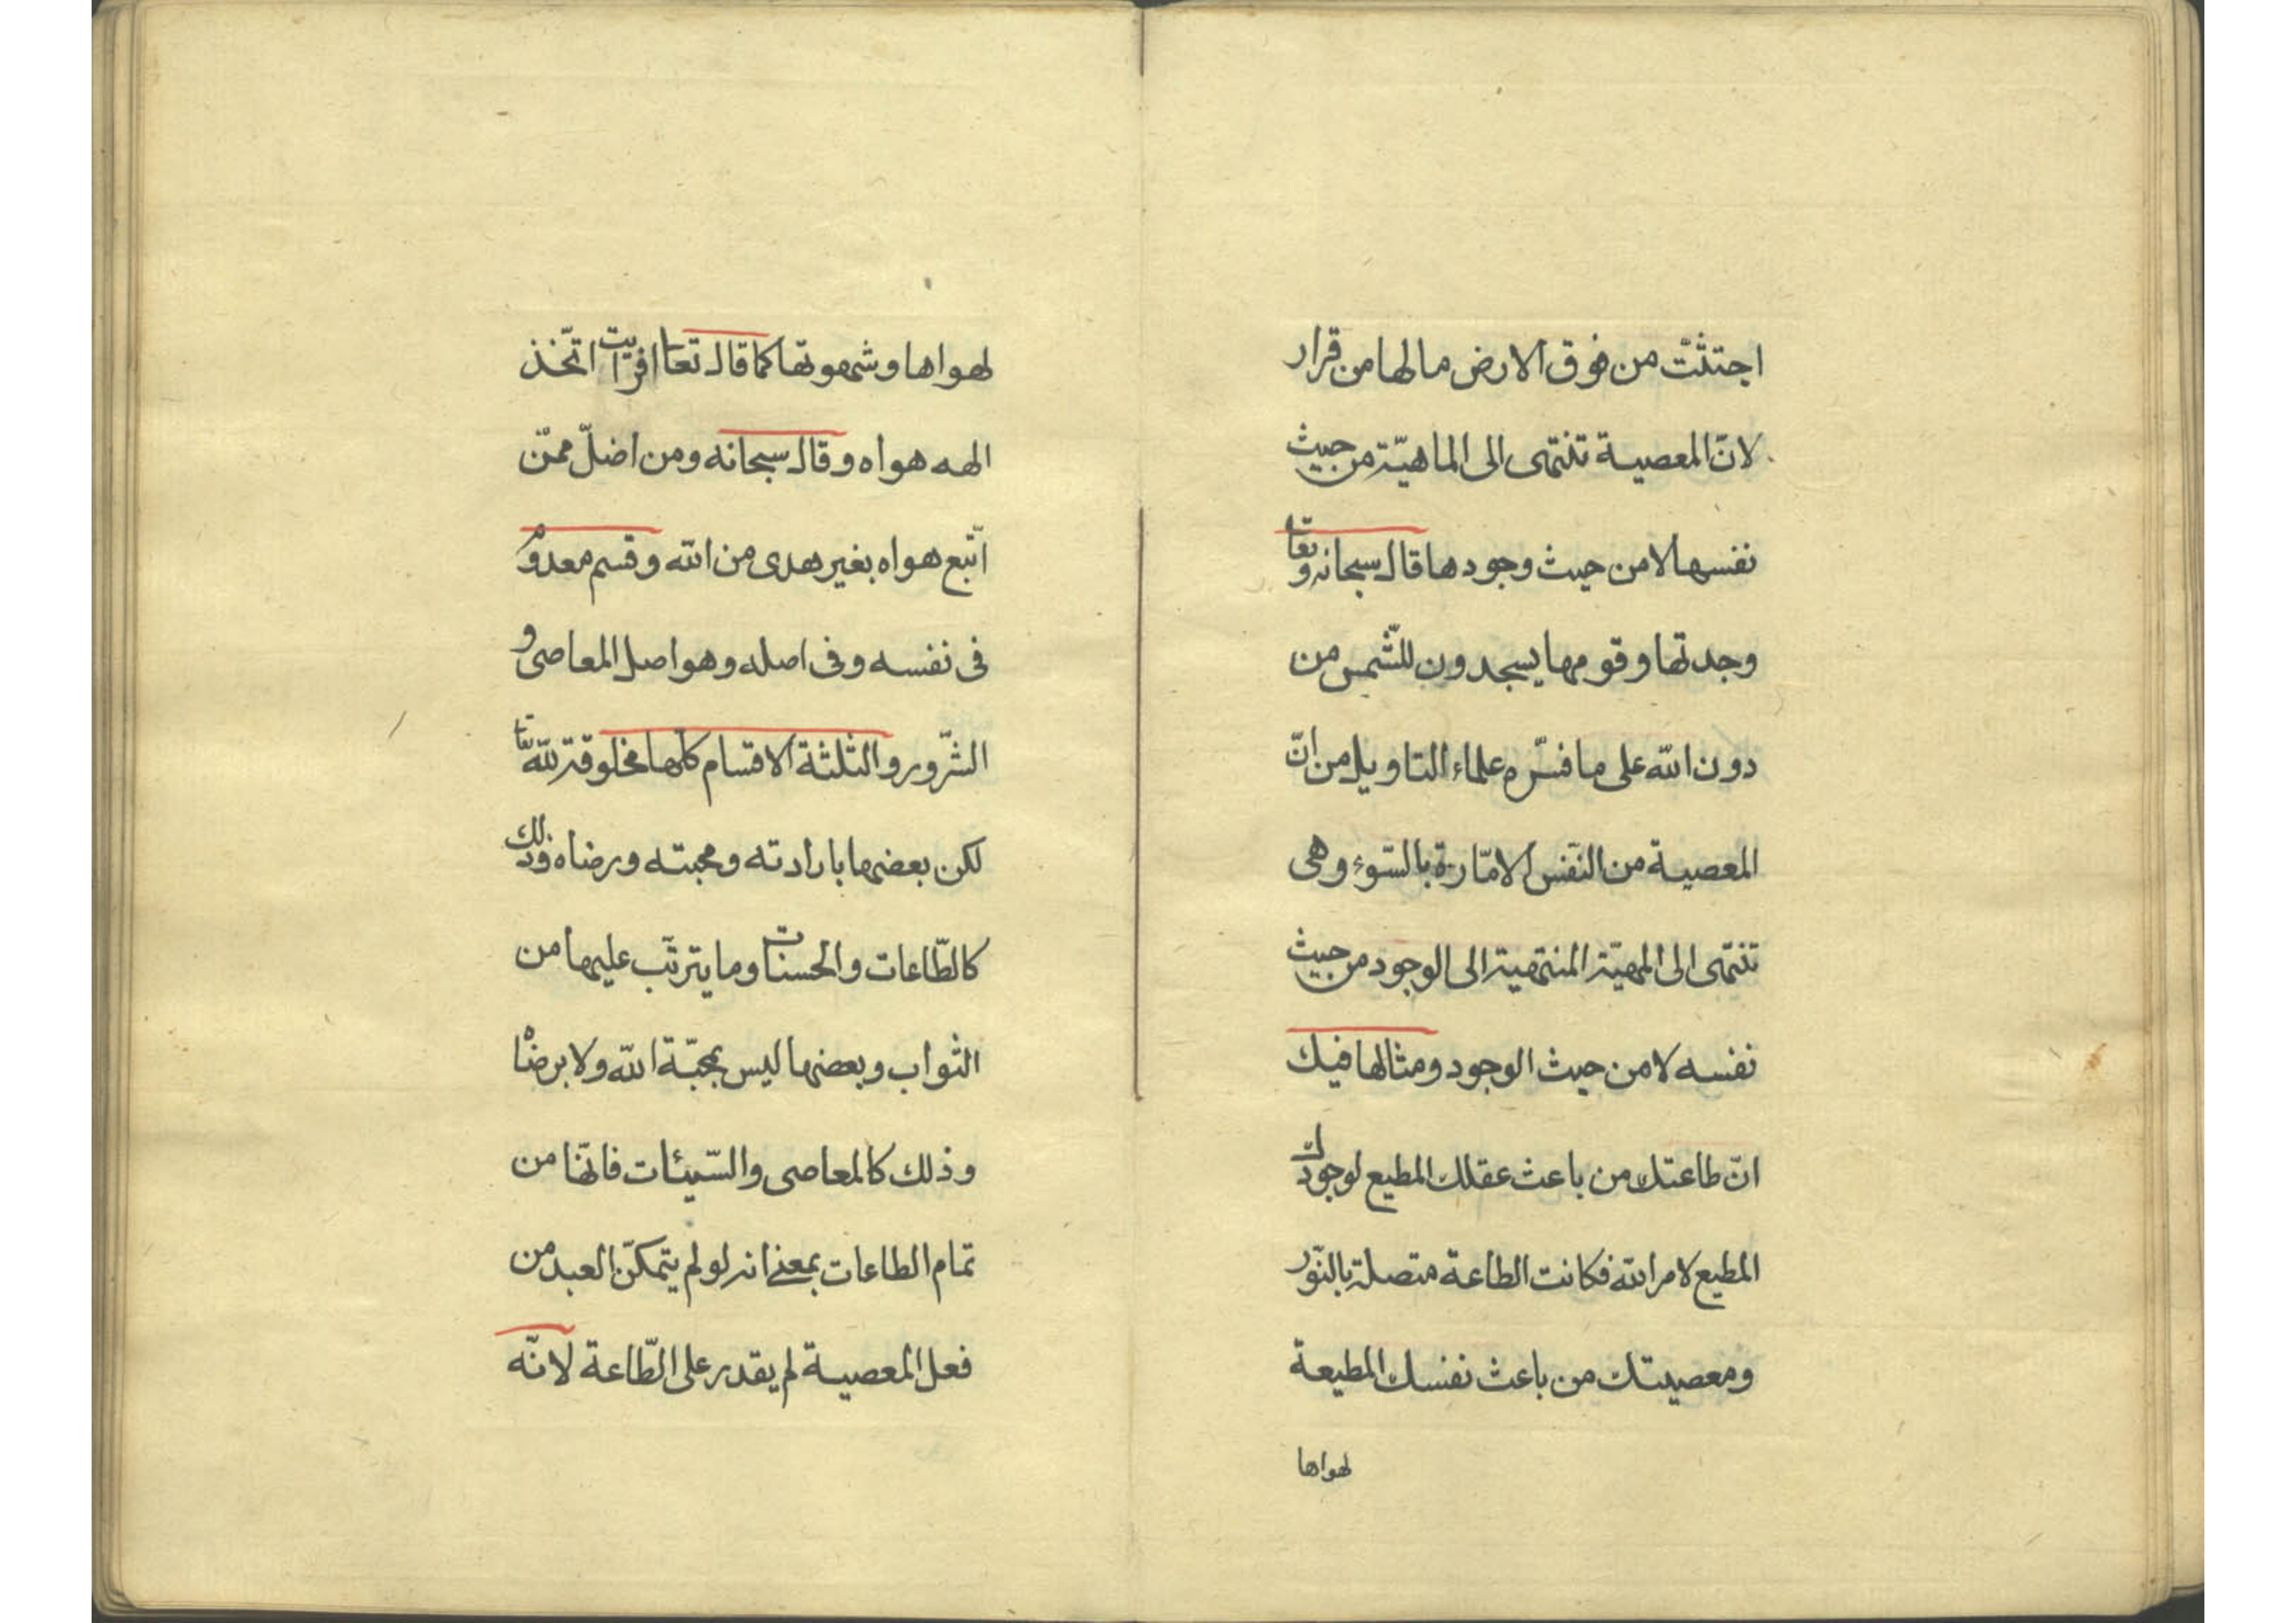 اجتثّت من فوق الارض ما لها من قرار
لانّ المعصية تنتهى الى الماهيّة من حيث
نفسها لا من حيث وجودها قال سبحانه وتعا
وجدتها وقومها يسجدون للشّمس من
دون الله على ما فسّره علماء التاويل من انّ
المعصية من النّفس الامّارة بالسّوء وهى
تنتهى الى المهيّة المنتهية الى الوجود من حيث
نفسه لا من حيث الوجود ومثالها فيك
انّ طاعتك من باعث عقلك المطيع لوجودك
المطيع لامر الله فكانت الطاعة متصلة بالنّور
ومعصيتك من باعث نفسك المطيعة
لهواها
لهواها وشهوتها كما قال تعا افرايت اتّخذ
الهه هواه وقال سبحانه ومن اضلّ ممّن
اتّبع هواه بغير هدى من الله وقسم معدوم
فى نفسه وفى اصله وهو اصل المعاصى و
الشّرور والثلثة الاقسام كلّها مخلوقة لله تعا
لكن بعضها بارادته ومحبته ورضاه وذلك
كالطّاعات والحسنات وما يترتّب عليها من
الثواب وبعضها ليس بمحبّة الله ولا برضاه
وذلك كالمعاصى والسّيئات فانّها من
تمام الطاعات بمعنى انه لو لم يتمكّن العبد من
فعل المعصية لم يقدر على الطّاعة لانّه